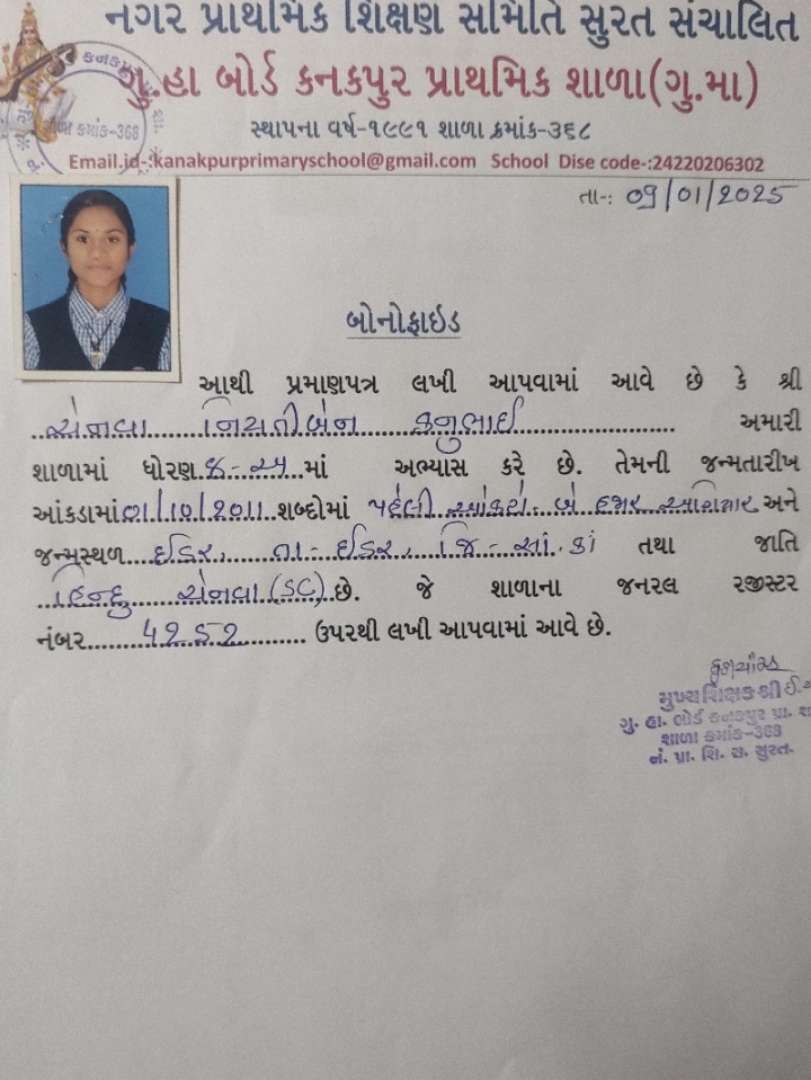 નગર પ્રાથમિક શિક્ષણ સમિતિ સુરત સંચાલિત
ગુ.હા બોર્ડ કનકપુર પ્રાથમિક શાળા(ગુ.મા)
સ્થાપના વર્ષ-૧૯૯૧ શાળા ક્રમાંક-૩૬૮
Email.id-:kanakpurprimaryschool@gmail.com School Dise code-:24220206302
તા-: 09/01/2025
બોનોફાઇડ
આથી પ્રમાણપત્ર લખી આપવામાં આવે છે કે શ્રી
સેનવા નિયતીબેન કનુભાઈ અમારી
શાળામાં ધોરણ 8-અ માં અભ્યાસ કરે છે. તેમની જન્મતારીખ
આંકડામાં 01/10/2011 શબ્દોમાં પહેલી ઓક્ટો. બે હજાર અગિયાર અને
જન્મસ્થળ ઈડર, તા-ઈડર, જિ-સાં.કાં તથા જાતિ
હિન્દુ સેનવા (SC) છે. જે શાળાના જનરલ રજીસ્ટર
નંબર 4252 ઉપરથી લખી આપવામાં આવે છે.
મુખ્ય શિક્ષક શ્રી
ગુ. હા. બોર્ડ કનકપુર પ્રા.
શાળા ક્રમાંક-368
ન. પ્રા. શિ. સ. સુરત.